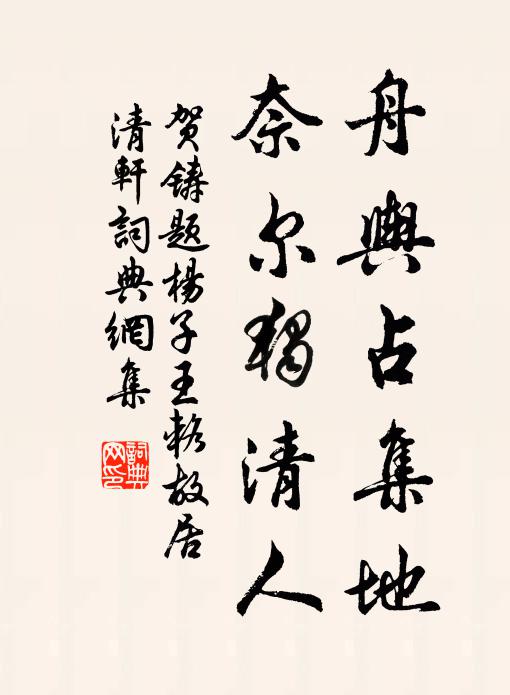 舟輿占集地
奈尔獨清人
贺鑄题楊子王乾故居
清軒詞典網集
詞典
网印